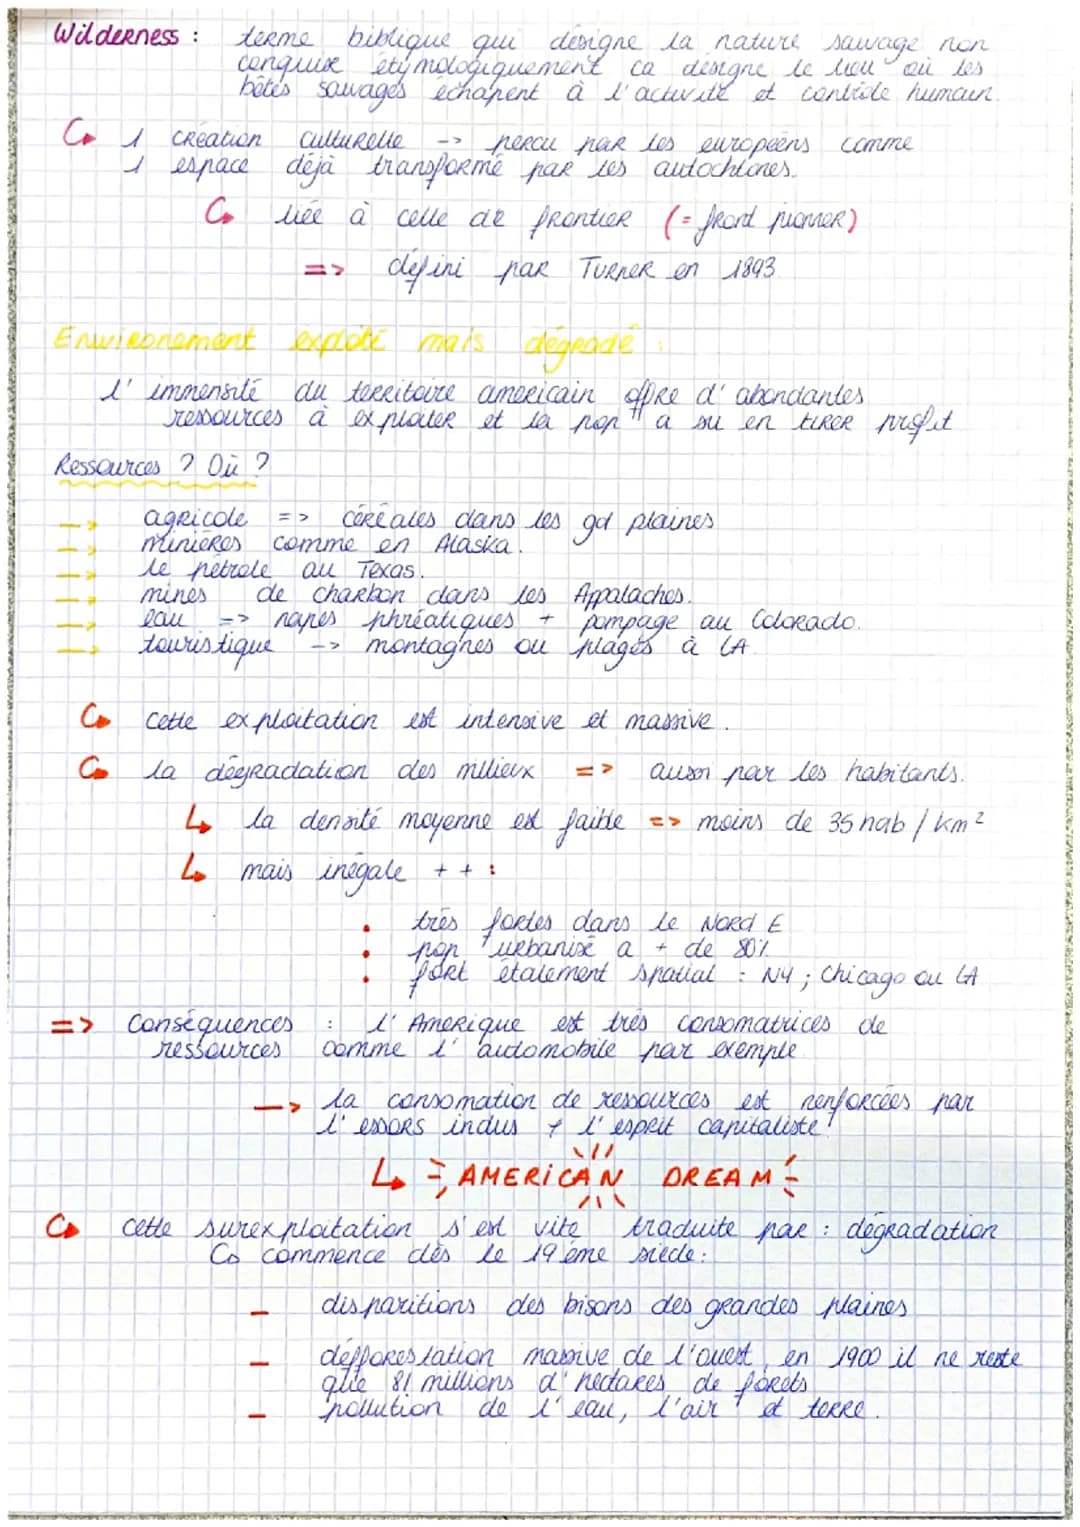 Wilderness : terme biblique qui désigne la nature sauvage non
conquise étymologiquement ca désigne le lieu où les
bêtes sauvages échapent à l'activité et contrôle humain.
1 création culturelle -> percu par les européens comme
1 espace déjà transformé par les autochtones.
liée à celle de frontier (= front pionner)
=> défini par Turner en 1893
Environement exploité mais dégradé :
l'immensité du territoire americain offre d'abondantes
ressources à exploiter et la pop° a su en tirer profit
Ressources ? Où ?
--> agricole => céréales dans les gd plaines
--> minières comme en Alaska.
--> le pétrole au Texas.
--> mines de charbon dans les Appalaches.
--> eau => napes phréatiques + pompage au Colorado.
--> touristique --> montagnes ou plages à LA
cette exploitation est intensive et massive.
la dégradation des milieux => aussi par les habitants.
↳ la densité moyenne est faible => moins de 35 hab / km²
↳ mais inégale + + :
• très fortes dans le Nord E
• pop° urbanisé a + de 80%
• fort étalement spatial : NY ; Chicago ou LA
=> Conséquences : l'Amerique est très consomatrices de
ressources comme l'automobile par exemple
—> la consomation de ressources est renforcées par
l'essors indus + l'esprit capitaliste
↳ AMERICAN DREAM
cette surexploitation s'est vite traduite par : dégradation
commence dès le 19 ème siècle :
– disparitions des bisons des grandes plaines
– défforestation massive de l'ouest, en 1900 il ne reste
que 81 millions d'hectares de forets
– pollution de l'eau, l'air et terre.